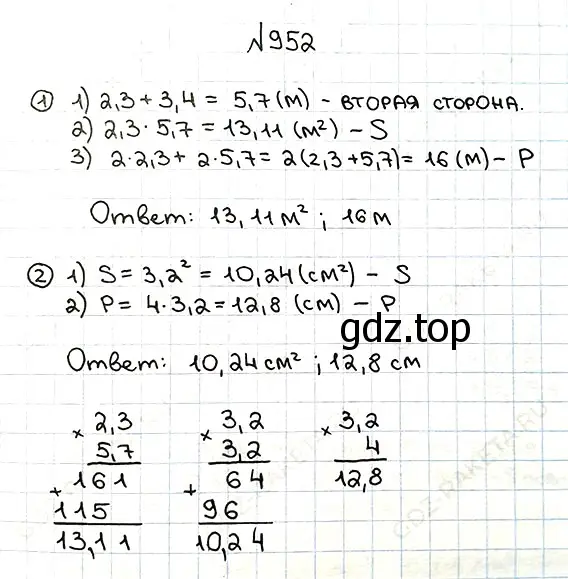 №952
① 1) 2,3 + 3,4 = 5,7 (м) - вторая сторона.
2) 2,3 · 5,7 = 13,11 (м²) - S
3) 2·2,3 + 2·5,7 = 2(2,3 + 5,7) = 16 (м) - P
Ответ: 13,11 м² ; 16 м
② 1) S = 3,2² = 10,24 (см²) - S
2) P = 4·3,2 = 12,8 (см) - P
gdz.top
Ответ: 10,24 см² ; 12,8 см
× 2,3
5,7
161
+
115
13,11
× 3,2
3,2
64
+
96
10,24
× 3,2
4
12,8
GDZ-RAKETA.RU